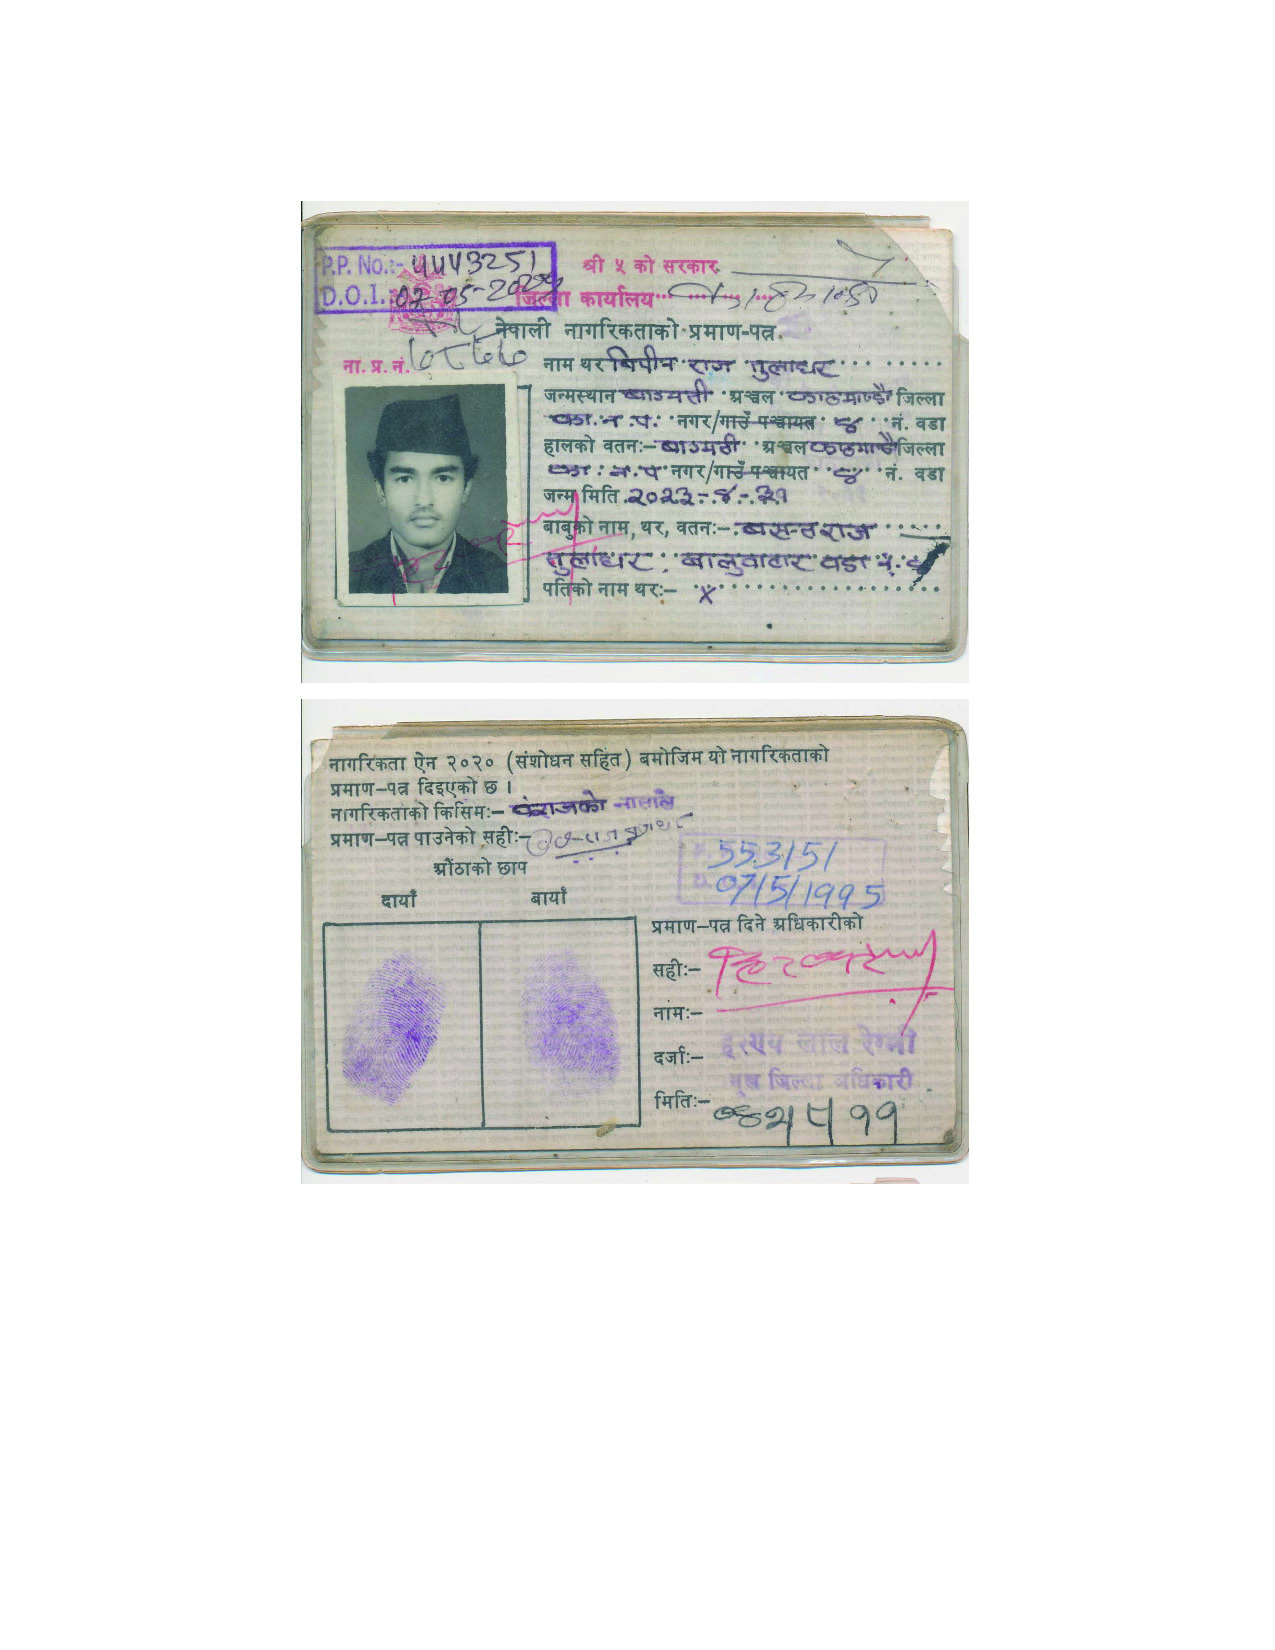 P.P. No.:- 4443251
D.O.I.: 07-05-2024
श्री ५ को सरकार
जिल्ला कार्यालय
नेपाली नागरिकताको प्रमाण-पत्र
ना. प्र. नं.
नाम थर विपीन राज तुलाधर
जन्मस्थान बागमती अञ्चल काठमाण्डौ जिल्ला
का. न. पं. नगर/गाउँ पञ्चायत ४ नं. वडा
हालको वतन:- बागमती अञ्चल काठमाण्डौ जिल्ला
का. न. पं नगर/गाउँ पञ्चायत ४ नं. वडा
जन्म मिति २०२३-४-३१
बाबुको नाम, थर, वतन:- बसन्तराज
तुलाधर, बालुवाटार वडा नं. ४
पतिको नाम थर:- x
नागरिकता ऐन २०२० (संशोधन सहित) बमोजिम यो नागरिकताको
प्रमाण-पत्र दिइएको छ ।
नागरिकताको किसिम:- वंशजको नाताले
प्रमाण-पत्र पाउनेको सही:-
औंठाको छाप
दायाँ बायाँ
553151
07/5/1995
प्रमाण-पत्र दिने अधिकारीको
सही:-
नाम:-
दर्जा:-
लाल रेग्मी
जिल्ला अधिकारी
मिति:-